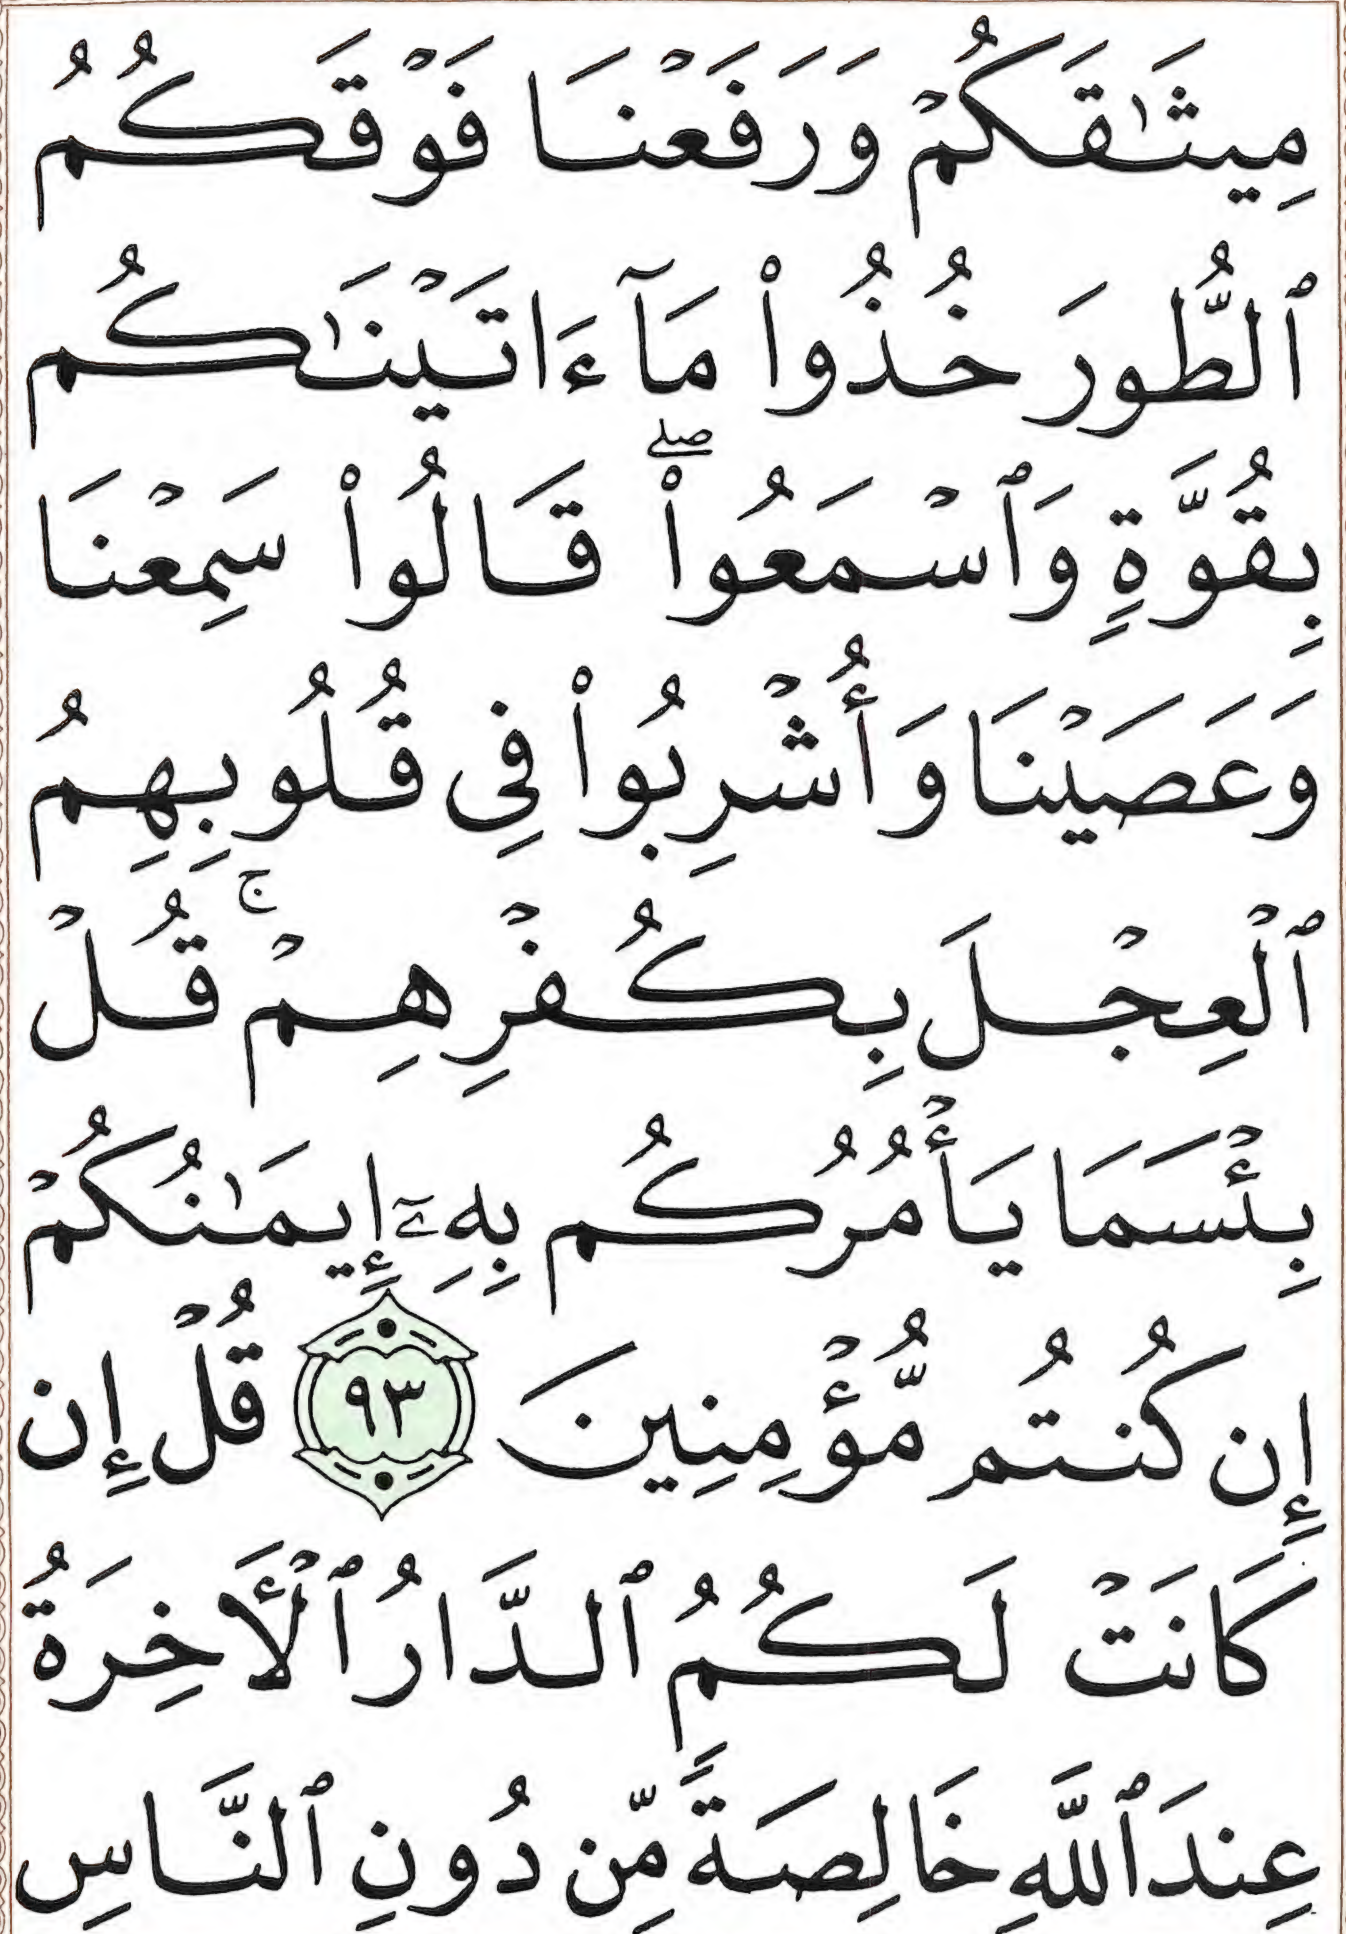 مِيثَٰقَكُمْ وَرَفَعْنَا فَوْقَكُمُ
ٱلطُّورَ خُذُوا۟ مَآ ءَاتَيْنَٰكُم
بِقُوَّةٍ وَٱسْمَعُوا۟ ۖ قَالُوا۟ سَمِعْنَا
وَعَصَيْنَا وَأُشْرِبُوا۟ فِى قُلُوبِهِمُ
ٱلْعِجْلَ بِكُفْرِهِمْ ۚ قُلْ
بِئْسَمَا يَأْمُرُكُم بِهِۦٓ إِيمَٰنُكُمْ
إِن كُنتُم مُّؤْمِنِينَ ٩٣ قُلْ إِن
كَانَتْ لَكُمُ ٱلدَّارُ ٱلْأَخِرَةُ
عِندَ ٱللَّهِ خَالِصَةً مِّن دُونِ ٱلنَّاسِ